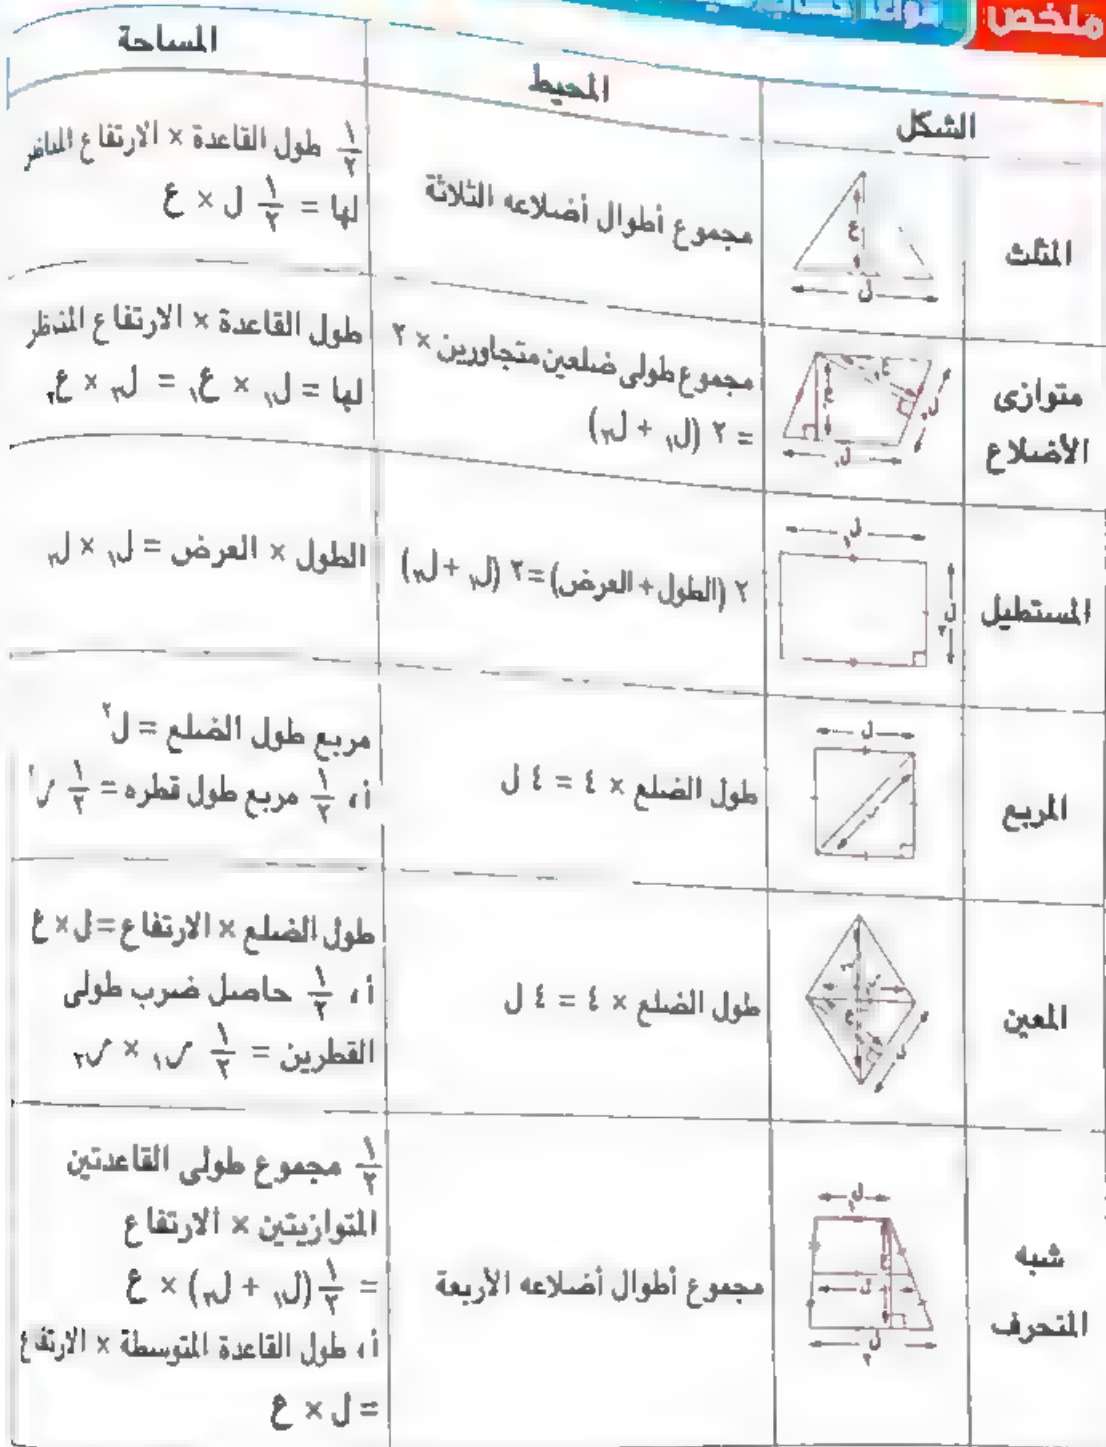 ملخص
الشكل
المحيط
المساحة
المثلث
ع
ل
مجموع أطوال أضلاعه الثلاثة
١/٢ طول القاعدة × الارتفاع المناظر
لها = ١/٢ ل × ع
متوازى
الأضلاع
مجموع طولى ضلعين متجاورين × ٢
= ٢ (ل١ + ل٢)
طول القاعدة × الارتفاع المناظر
لها = ل١ × ع١ = ل٢ × ع٢
المستطيل
٢ (الطول + العرض) = ٢ (ل١ + ل٢)
الطول × العرض = ل١ × ل٢
المربع
ل
طول الضلع × ٤ = ٤ ل
مربع طول الضلع = ل٢
أ، ١/٢ مربع طول قطره = ١/٢ س٢
المعين
طول الضلع × ٤ = ٤ ل
طول الضلع × الارتفاع = ل × ع
أ، ١/٢ حاصل ضرب طولى
القطرين = ١/٢ س١ × س٢
شبه
المنحرف
مجموع أطوال أضلاعه الأربعة
١/٢ مجموع طولى القاعدتين
المتوازيتين × الارتفاع
= ١/٢ (ل١ + ل٢) × ع
أ، طول القاعدة المتوسطة × الارتفاع
= ل × ع